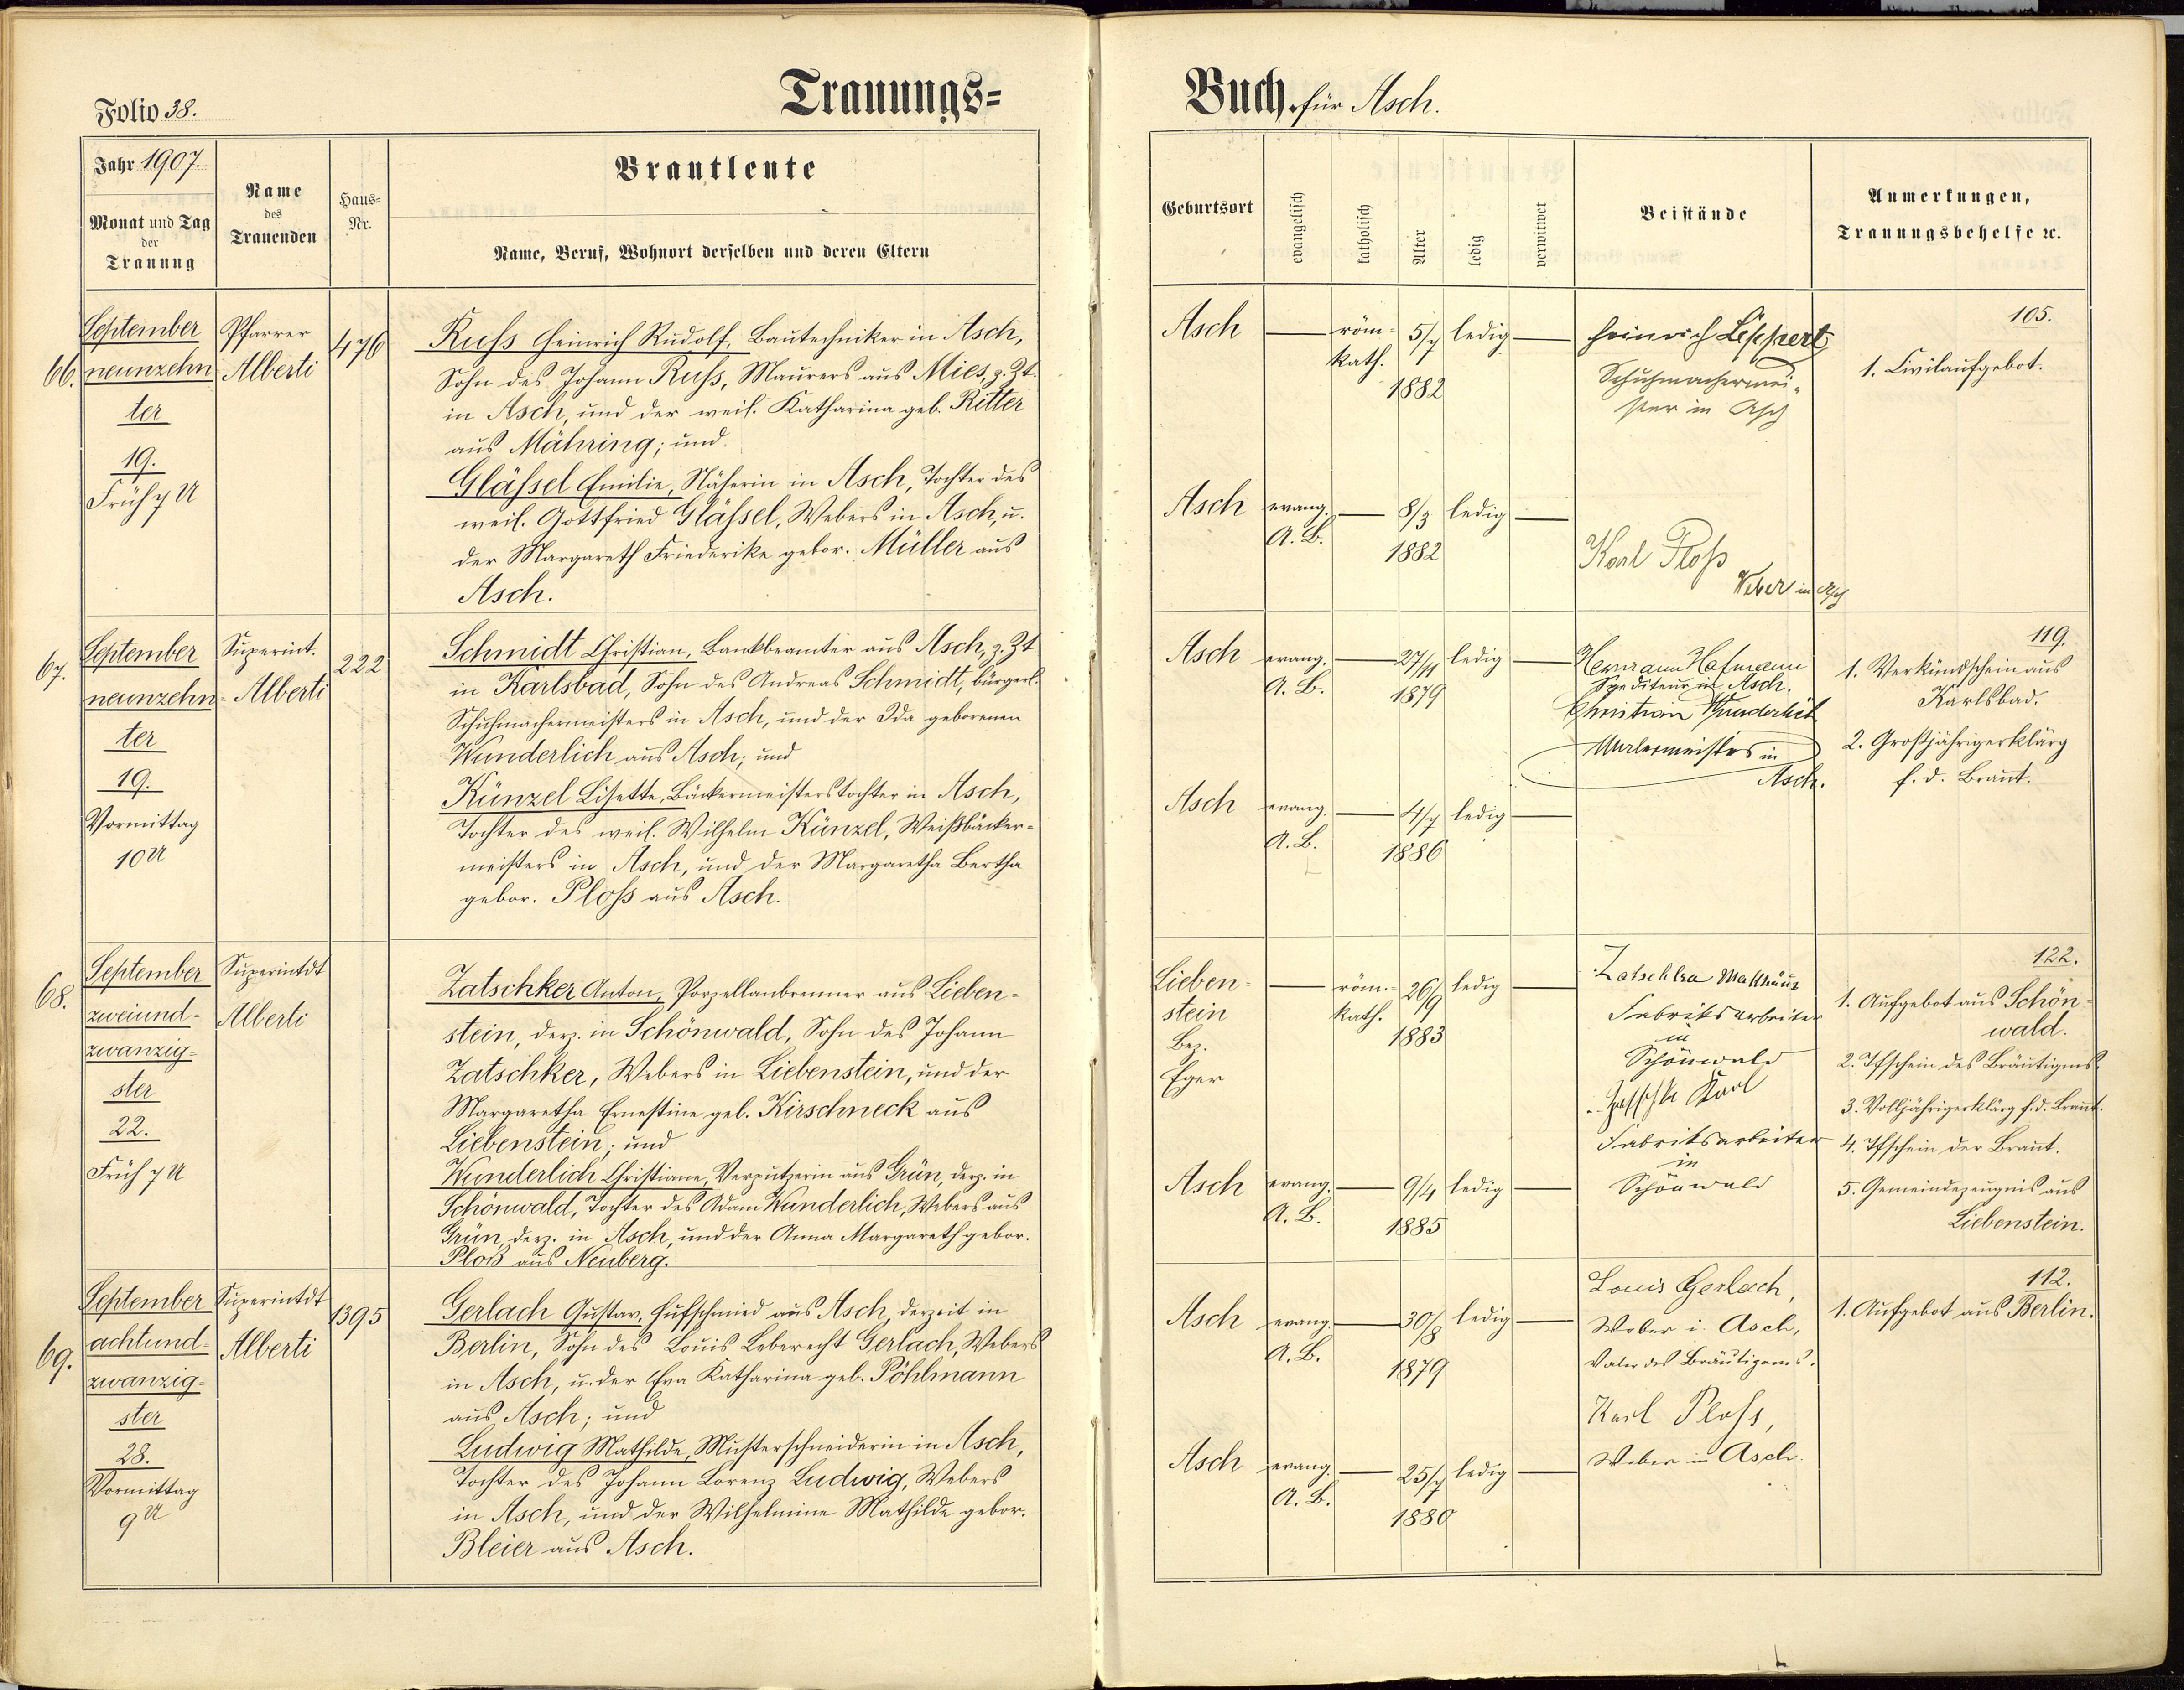 Folio 38.
Trauungs=
Jahr 1907.
Monat und Tag
der
Trauung
Name
des
Trauenden
Haus=
Nr.
Brautleute
Name, Beruf, Wohnort derselben und deren Eltern
66.
September
neunzehn
ter
19.
Früh 7 U
Pfarrer
Alberti
476
Russ Heinrich Rudolf, Bautechniker in Asch,
Sohn des Johann Russ, Maurers aus Mies, z. Zt.
in Asch, und der weil. Katharina geb. Ritter
aus Mähring; und
Glässel Emilie, Näherin in Asch, Tochter des
weil. Gottfried Glässel, Webers in Asch, u.
der Margareth Friederike gebor. Müller aus
Asch.
67.
September
neunzehn=
ter
19.
Vormittag
10 U
Superint.
Alberti
222
Schmidt Christian, Bankbeamter aus Asch, z. Zt
in Karlsbad, Sohn des Andreas Schmidt, bürgerl.
Schuhmachermeisters in Asch, und der Ida geborenen
Wunderlich aus Asch; und
Künzel Lisette, Bäckermeisterstochter in Asch,
Tochter des weil. Wilhelm Künzel, Weißbäcker=
meisters in Asch, und der Margaretha Bertha
gebor. Ploss aus Asch.
68.
September
zweiund=
zwanzig=
ster
22.
Früh 7 U
Superintdt
Alberti
Zatschker Anton, Porzellanbrenner aus Lieben=
stein, derz. in Schönwald, Sohn des Johann
Zatschker, Webers in Liebenstein, und der
Margaretha Ernestine geb. Kirschneck aus
Liebenstein; und
Wunderlich Christiane, Verputzerin aus Grün, derz. in
Schönwald, Tochter des Adam Wunderlich, Webers aus
Grün, derz. in Asch, und der Anna Margareth gebor.
Ploß aus Neuberg.
69.
September
achtund=
zwanzig=
ster
28.
Vormittag
9 U
Superintdt
Alberti
1395
Gerlach Gustav, Hufschmied aus Asch, derzeit in
Berlin, Sohn des Louis Leberecht Gerlach, Webers
in Asch, u. der Eva Katharina geb. Pöhlmann
aus Asch; und
Ludwig Mathilde, Musterschneiderin in Asch,
Tochter des Johann Lorenz Ludwig, Webers
in Asch, und der Wilhelmine Mathilde gebor.
Bleier aus Asch.
Buch für Asch.
Geburtsort
evangelisch
katholisch
Alter
ledig
verwitwet
Beistände
Anmerkungen,
Trauungsbehelfe ec.
Asch — röm= 5/7 ledig —
kath.
1882
Heinrich Leppert,
Schuhmachermei=
ster in Asch
105.
1. Civilaufgebot.
Asch evang. — 8/3 ledig —
A. B.
1882
Karl Ploß
Weber in Asch
Asch evang. — 27/11 ledig —
A. B.
1879
Hermann Hofmann
Spediteur in Asch.
Christian Wunderlich
Malermeister in
Asch.
119.
1. Verkündschein aus
Karlsbad.
2. Großjährigerklärg
f. d. Braut.
Asch evang. — 4/7 ledig —
A. B.
1886
Lieben=
stein
Bez.
Eger
— röm.= 26/9 ledig —
kath.
1883
Zatschka Matthäus
Fabriksarbeiter
in
Schönwald
Karl
Fabriksarbeiter
in
Schönwald
122.
1. Aufgebot aus Schön=
wald.
2. Tfschein des Bräutigms.
3. Volljährigerklärg f. d. Braut.
4. Tfschein der Braut.
5. Gemeindezeugnis aus
Liebenstein.
Asch evang. — 9/4 ledig —
A. B.
1885
Asch evang. — 30/8 ledig —
A. B.
1879
Louis Gerlach,
Weber i. Asch,
Vater des Bräutigams.
Karl Ploss,
Weber in Asch.
112.
1. Aufgebot aus Berlin.
Asch evang. — 25/7 ledig —
A. B.
1880